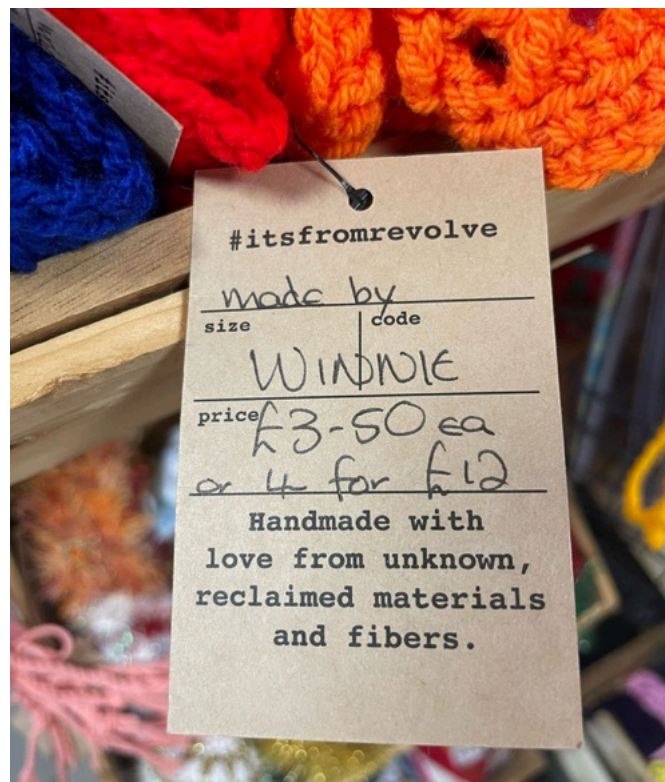 #itsfromrevolve
made by
size code
WINNIE
price £3-50 ea
or 4 for £12
Handmade with
love from unknown,
reclaimed materials
and fibers.